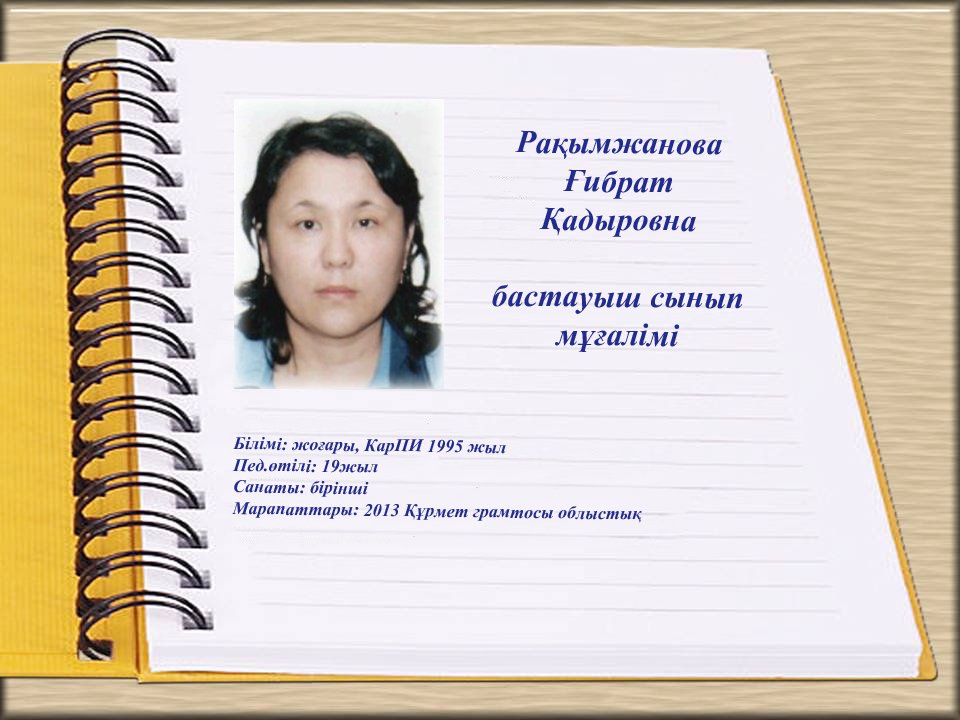 Рақымжанова
Ғибрат
Қадыровна
бастауыш сынып
мұғалімі
Білімі: жоғары, КарПИ 1995 жыл
Пед.өтілі: 19жыл
Санаты: бірінші
Марапаттары: 2013 Құрмет грамтосы облыстық